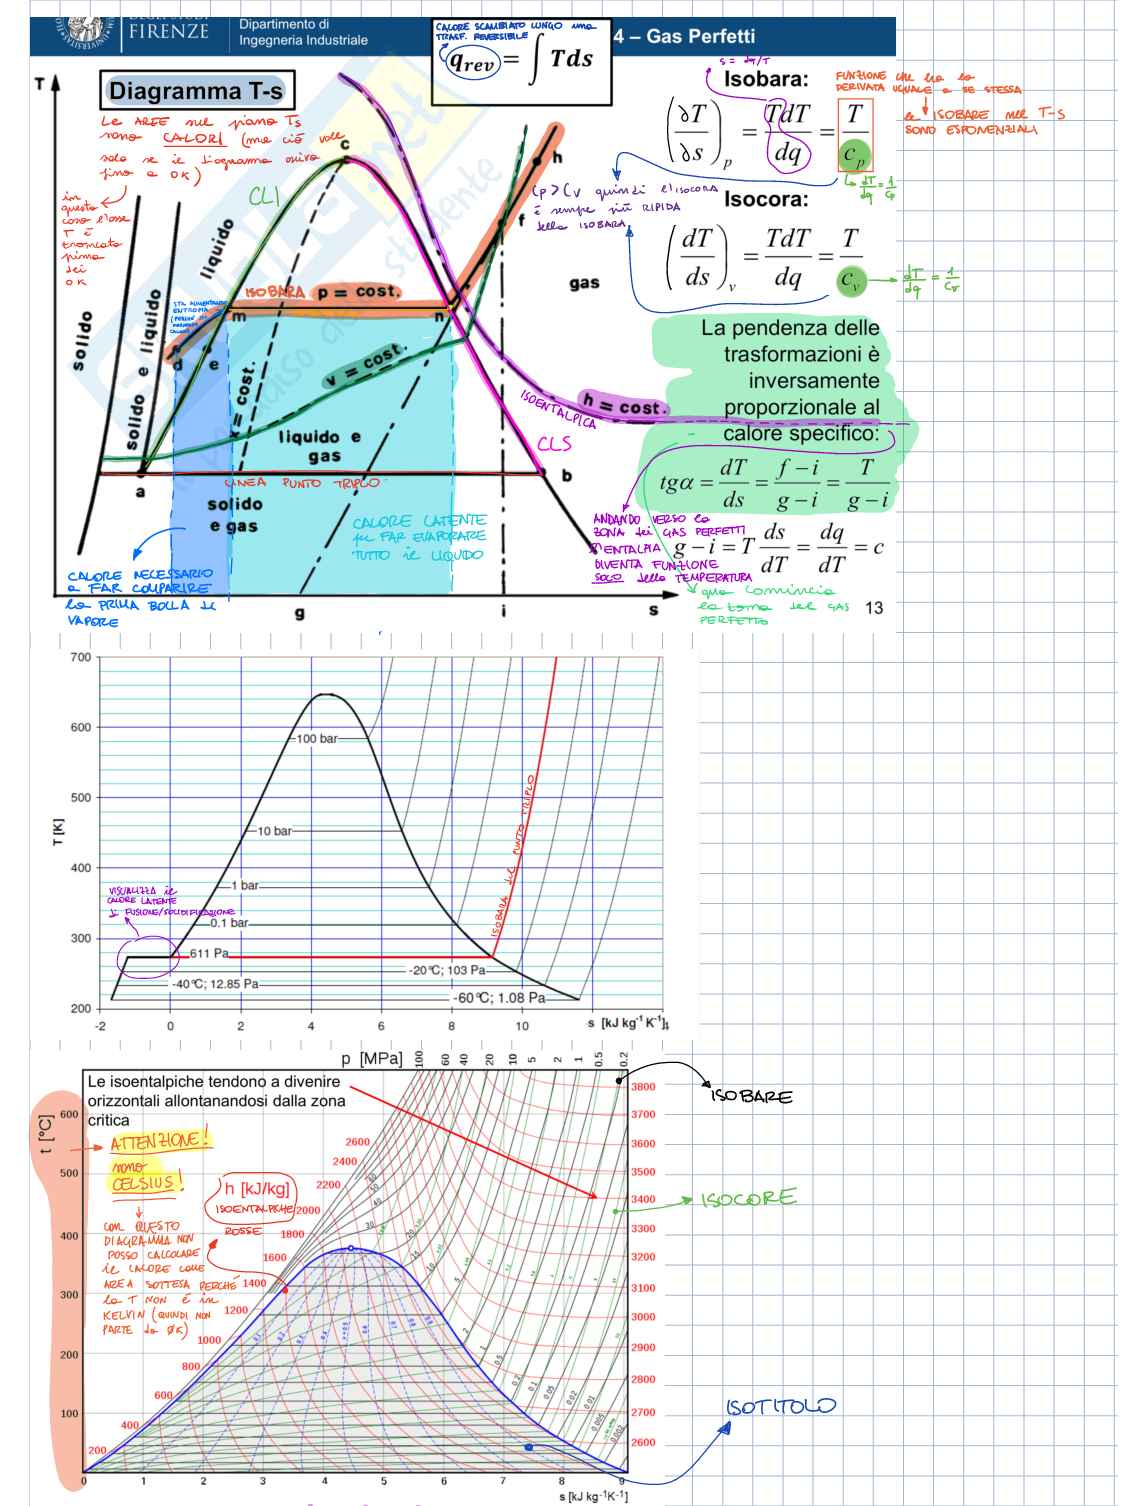 FIRENZE
Dipartimento di
Ingegneria Industriale
4 – Gas Perfetti
CALORE SCAMBIATO LUNGO una
TRASF. REVERSIBILE
q_rev = ∫ Tds
Diagramma T-s
T
Le AREE sul piano Ts
sono CALORI (ma ciò vale
solo se il diagramma arriva
fino a 0K)
in
questo
caso l'asse
T è
troncato
prima
dei
0K
s = dq/T
Isobara:
(∂T/∂s)p = TdT/dq = T/cp
FUNZIONE che ha la
DERIVATA UGUALE a SE STESSA
le ISOBARE nel T-S
SONO ESPONENZIALI
dT/dq = 1/cp
Cp > Cv quindi l'ISOCORA
è sempre più RIPIDA
della ISOBARA
Isocora:
(dT/ds)v = TdT/dq = T/cv
dT/dq = 1/cv
c
h
f
CLI
liquido
solido e liquido
solido
ISOBARA
p = cost.
m
n
d
e
gas
v = cost.
x = cost.
ISOENTALPICA
h = cost.
CLS
liquido e
gas
a
b
LINEA PUNTO TRIPLO
solido
e gas
CALORE LATENTE
per FAR EVAPORARE
TUTTO il LIQUIDO
CALORE NECESSARIO
a FAR COMPARIRE
la PRIMA BOLLA di
VAPORE
g
i
s
La pendenza delle
trasformazioni è
inversamente
proporzionale al
calore specifico:
tgα = dT/ds = f – i/g – i = T/g – i
g – i = T ds/dT = dq/dT = c
ANDANDO VERSO la
ZONA dei GAS PERFETTI
l'ENTALPIA
DIVENTA FUNZIONE
SOLO della TEMPERATURA
qua comincia
la zona del GAS
PERFETTO
13
700
600
500
400
300
200
T [K]
100 bar
10 bar
1 bar
0.1 bar
611 Pa
-20°C; 103 Pa
-40°C; 12.85 Pa
-60°C; 1.08 Pa
ISOBARA del PUNTO TRIPLO
VISUALIZZA il
CALORE LATENTE
di FUSIONE/SOLIDIFICAZIONE
-2 0 2 4 6 8 10
s [kJ kg⁻¹ K⁻¹]
p [MPa] 100 60 40 20 10 5 2 1 0.5 0.2
Le isoentalpiche tendono a divenire
orizzontali allontanandosi dalla zona
critica
t [°C]
600
500
400
300
200
100
ATTENZIONE!
sono
CELSIUS!
con QUESTO
DIAGRAMMA NON
POSSO CALCOLARE
il CALORE come
AREA SOTTESA PERCHÉ
la T NON è in
KELVIN (QUINDI NON
PARTE da 0K)
h [kJ/kg]
ISOENTALPICHE
ROSSE
2600
2400
2200
2000
1800
1600
1400
1200
1000
800
600
400
200
3800
3700
3600
3500
3400
3300
3200
3100
3000
2900
2800
2700
2600
ISOBARE
ISOCORE
ISOTITOLO
0 1 2 3 4 5 6 7 8 9
s [kJ kg⁻¹K⁻¹]